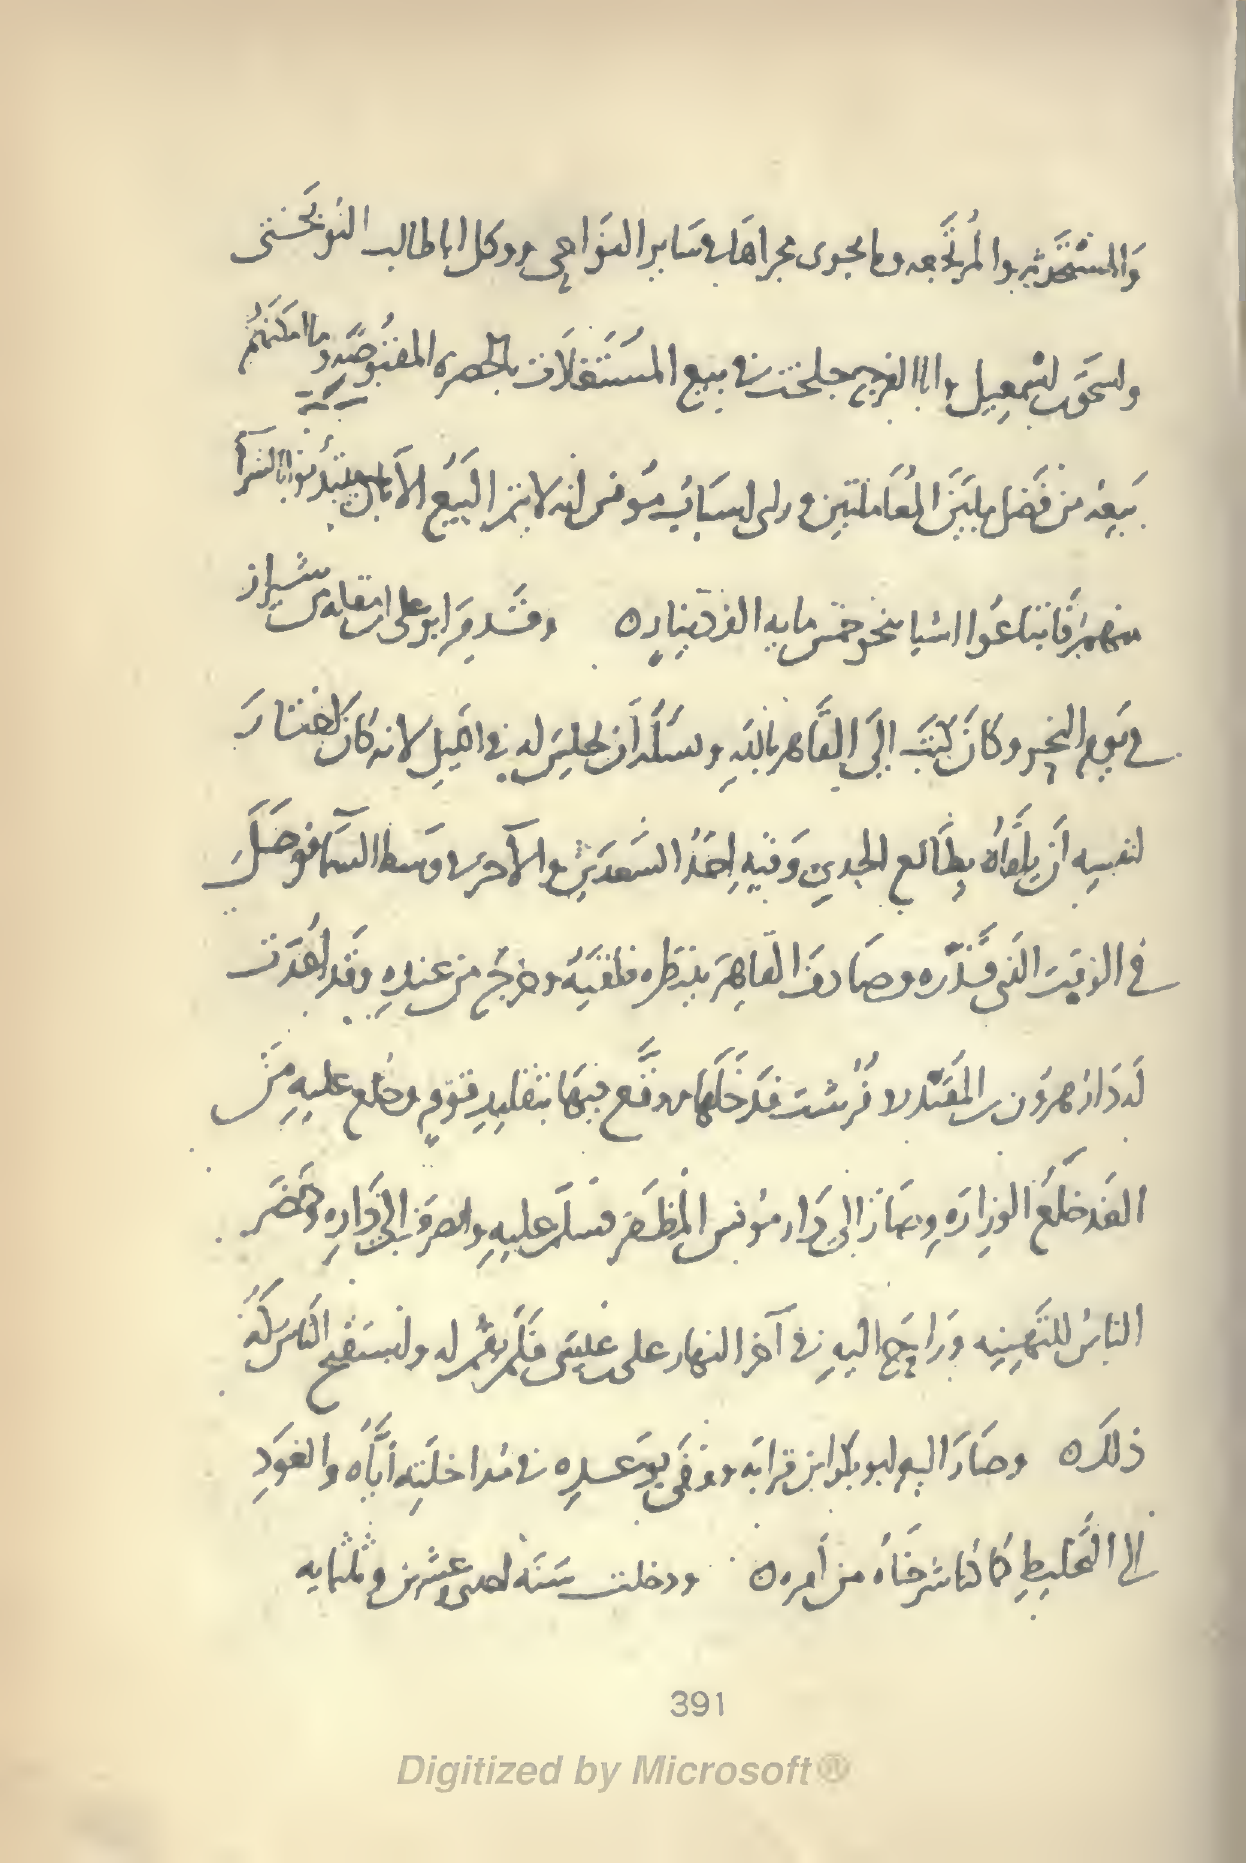 وَالمسْتَحْدَثه والمُرتَجعه وما يجرى مجراهَا فى سَاير النوَاحى ووكل ابا طالب النُوبَختى
واسحَق بن اسمعِيل وابا الفرج جلخت فى بيع المُسْتَغَلَات بالحضره المقبُوضَه وما امكنَهُم
بَيعهُ من فَضل مَا بَيَن المُعَاملتين ورلى اسبَاب مُونس انه لا يتم البَيعُ الا بان يبتدُوا بالشرآ
منهم فَابتَاعُوا اشيا بنحو خمس مايه الف دَينار ه وقَدِمَ ابو على ابن مقله من شيراز
فى يَومِ النحرِ وكانَ كتبَ الَى القَاهر باللهِ وسَلَه أن يجلِسَ له فى الليلِ لانه كان اختَارَ
لنفسِه اَن يلقاهُ بِطَالع الجدىِ وَفيهِ احَدُ السَعدَينِ والآخر فى وَسط السَمآ فوصَلَ
فى الوقتِ الذى قَدَّره وصَادفَ القاهِرَ ينتظره فلقيَهُ وخرجَ من عندهِ وقَد اُعُدَت
لَه دَار هرُون بن المقتَدر وفُرشَت فدَخلَهَا ووقَّع فيهَا بتقليدِ قَومٍ وخُلع عليهِ مِن
الغَد خلَع الوزارَهِ وصَارَ الى دَار مونس المُظفَر فسَلَّم عليهِ وانصرفَ الى دَارِه وَحضَر
الناسُ للتَهنِيه ورَاحَ اليهِ فى آخر النهار على بن عيسَى فلَم يقُم له واستقبحَ النَاسُ لَهُ
ذلكَ ه وصَارَ اليهِ ابو بكر ابن قرابَه ووَفَى بوَعدِه فى مُداخلَتِه اَيّاه والعَودِ
الى التَخليطِ كما كنا شرحنَاهُ من اَمره ه ودخلت سَنَه احدى وعشرين وثلثمايه
391
Digitized by Microsoft®